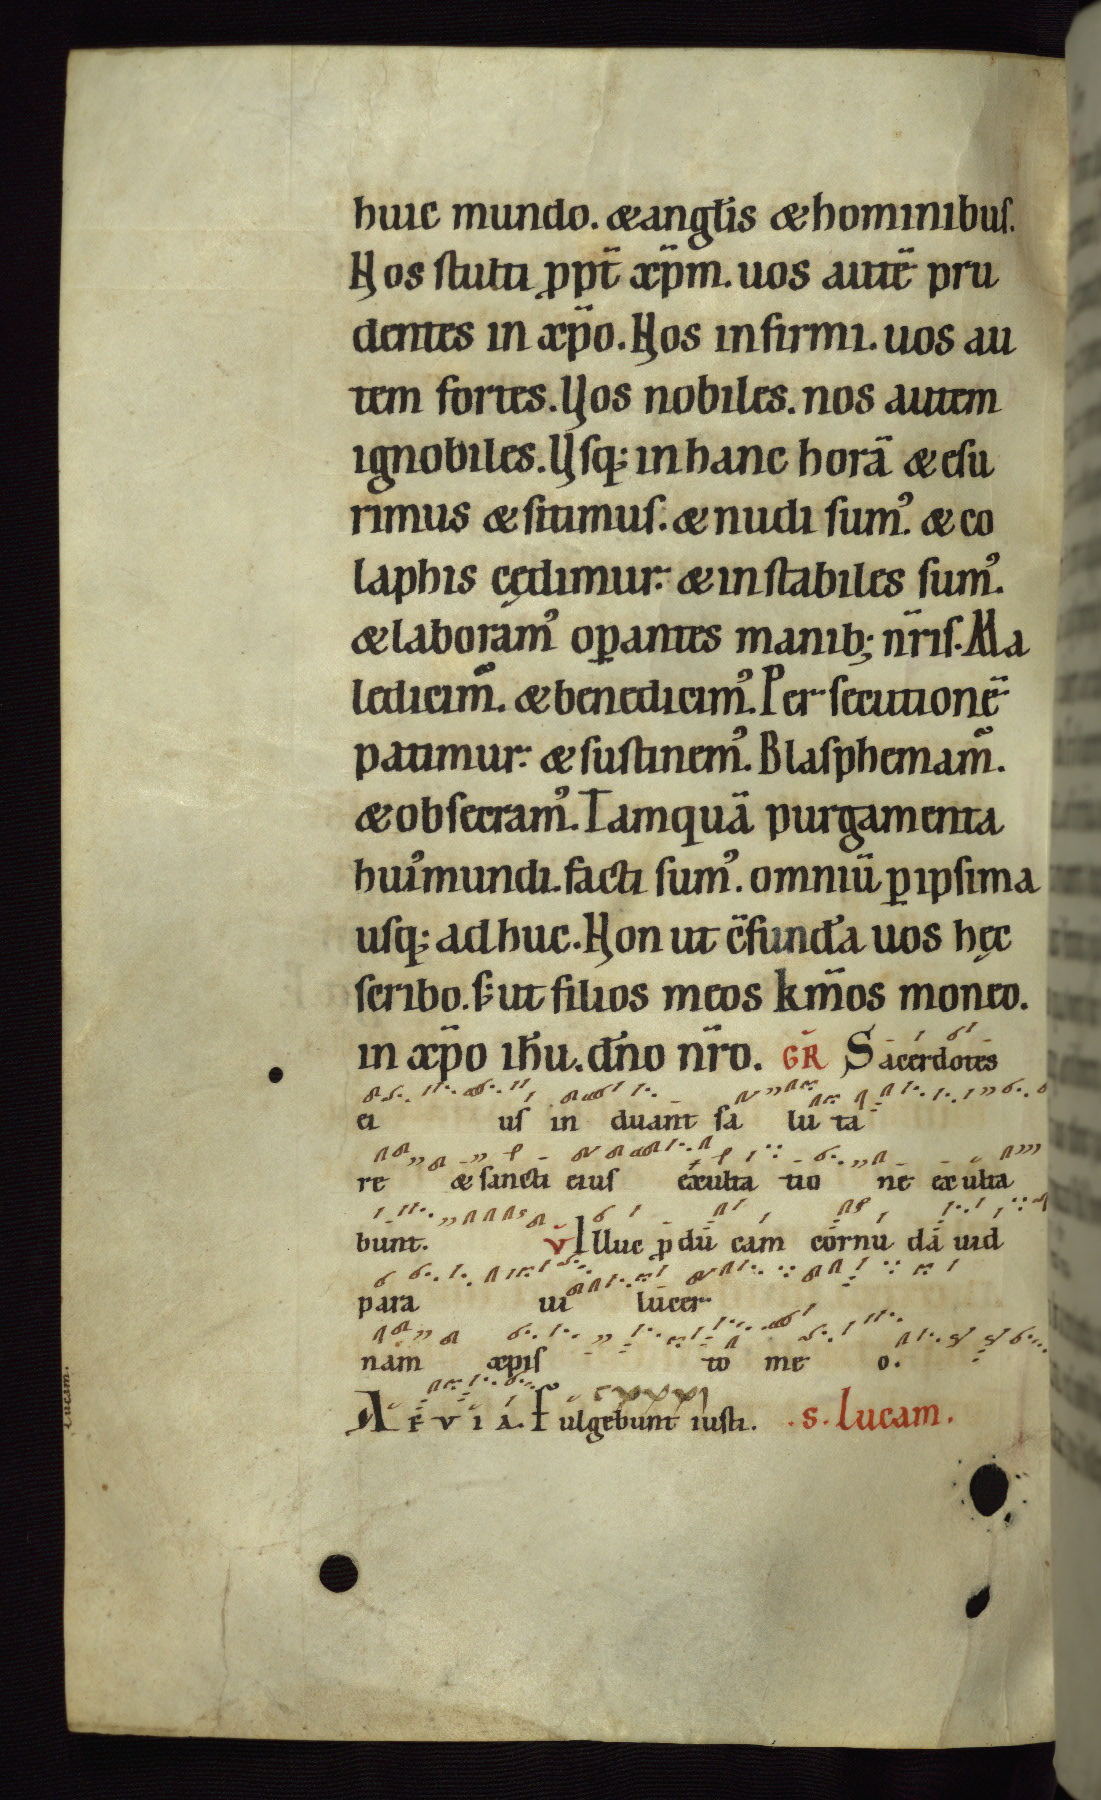 huic mundo. &angłis &hominibuſ.
Nos ſtulti ꝓpt̄ xp̄m. uos autē pru
dentes in xp̄o. Nos infirmi. uos au
tem fortes. Uos nobiles. nos autem
ignobiles. Uſq; in hanc horā & eſu
rimus & ſitimuſ. & nudi ſumꝰ. & co
laphis cędimur. & inſtabiles ſumꝰ.
& laboramꝰ oꝑantes manib; nr̄iſ. Ma
ledicim̄. & benedicimꝰ. Perſecutionē
patimur. & ſuſtinemꝰ. Blaſphemam̄.
& obſecramꝰ. Tamquā purgamenta
huiꝰ mundi. facti ſumꝰ. omniū ꝑipſima
uſq; adhuc. Non ut c̄funda uos hęc
ſcribo. ſ; ut filios meos km̄os moneo.
in xp̄o ihu. dn̄o nr̄o. GR̄ Sacerdotes
ei uſ in duant ſa lu ta
re & ſancti eiuſ exulta tio ne exulta
bunt. v̄ Illuc ꝓdū cam cornu da uid
para ui lucer
nam xpiſ to me o.
AEVIA. Fulgebunt iuſti. .s. Lucam.
Lucam.